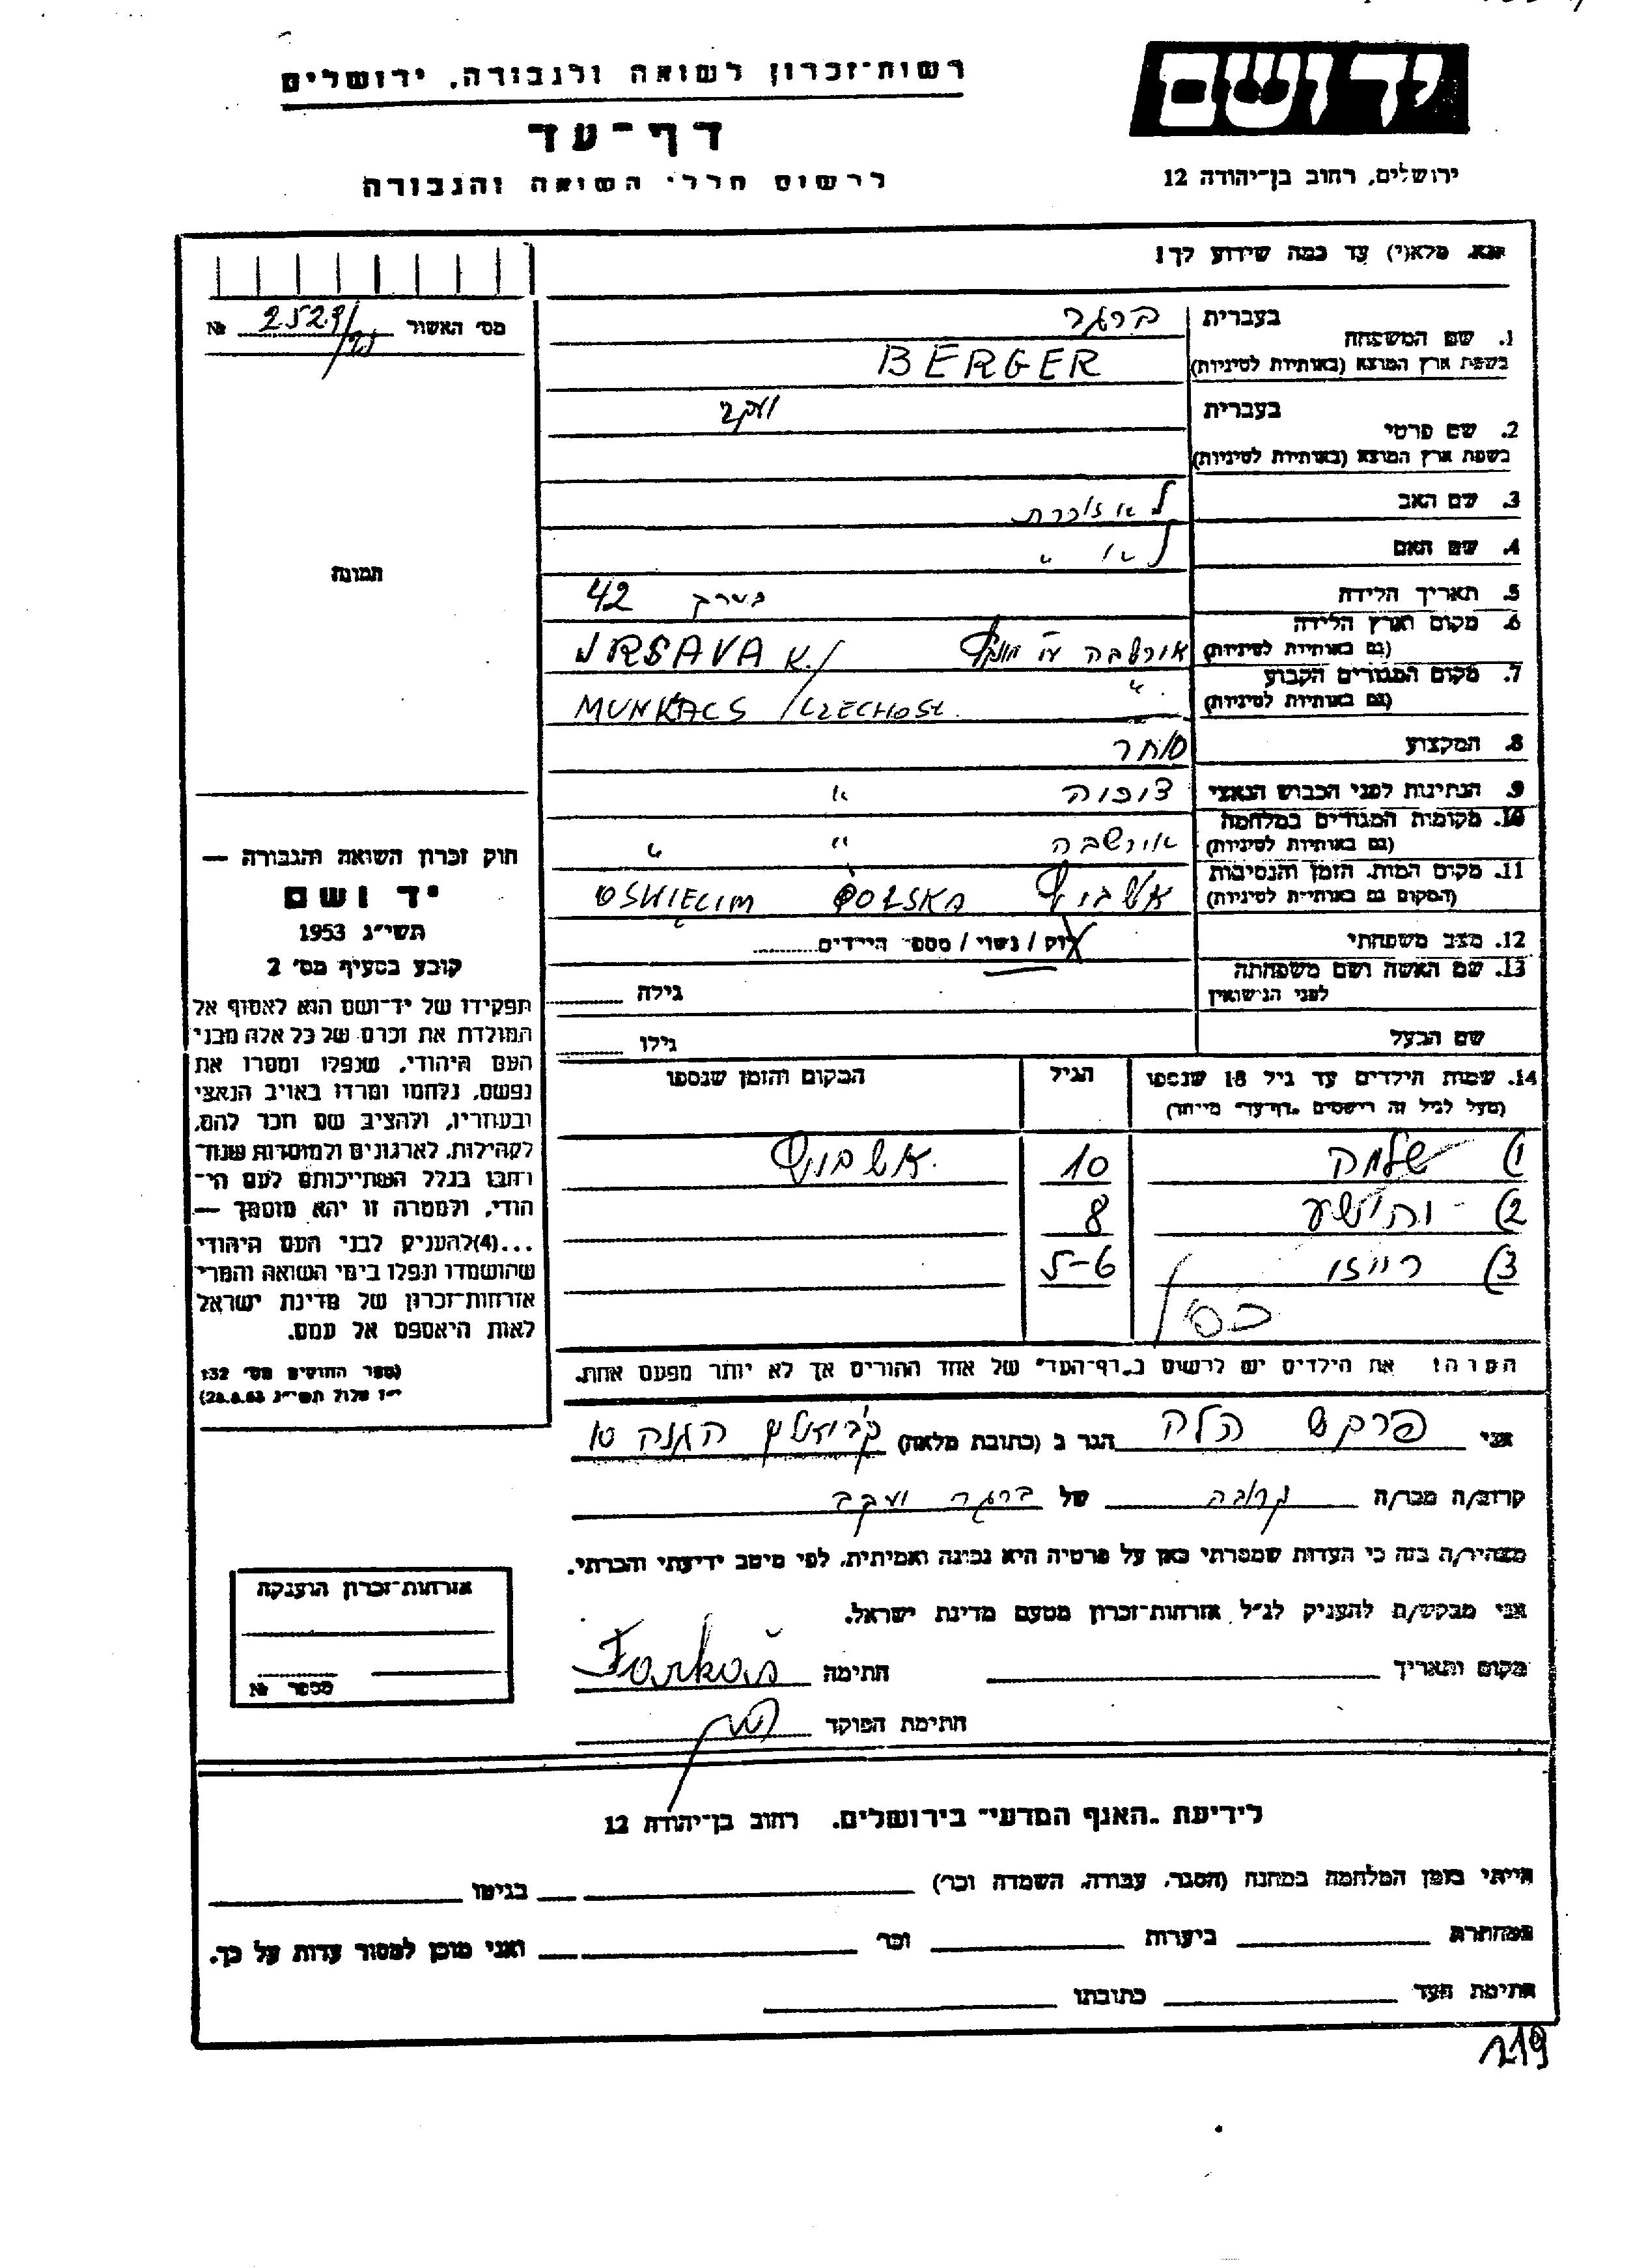 יד ושם
ירושלים, רחוב בן־יהודה 12
רשות־זכרון לשואה ולגבורה, ירושלים
דף־עד
לרשום חללי השואה והגבורה
נא מלא(י) עד כמה שידוע לך!
מס' האשור 2529/25 №
1. שם המשפחה
בעברית ברגר
בשפת ארץ המוצא (באותיות לטיניות) BERGER
2. שם פרטי
בעברית יעקב
בשפת ארץ המוצא (באותיות לטיניות)
3. שם האב לא זוכרת
4. שם האם לא "
5. תאריך הלידה בערך 42
6. מקום וארץ הלידה
(גם באותיות לטיניות) אורשבה ע"י URSAVA K./
7. מקום המגורים הקבוע "
(גם באותיות לטיניות) MUNKACS / CZECHOSL.
8. המקצוע סוחר
9. הנתינות לפני הכבוש הנאצי צ'כיה "
10. מקומות המגורים במלחמה
(גם באותיות לטיניות) אורשבה " "
11. מקום המות, הזמן והנסיבות
(המקום גם באותיות לטיניות) אושביץ POLSKA OSWIĘCIM
12. מצב משפחתי רווק / נשוי / מספר הילדים
13. שם האשה ושם משפחתה
לפני הנישואין גילה
שם הבעל גילו
14. שמות הילדים עד גיל 18 שנספו הגיל המקום והזמן שנספו
(מעל לגיל זה רושמים "דף־עד" מיוחד)
1) שלמה 10 אושביץ
2) יהושע 8
3) רייזי 5-6
הערה! את הילדים יש לרשום ב"דף־העד" של אחד ההורים אך לא יותר מפעם אחת.
תמונה
חוק זכרון השואה והגבורה —
יד ושם
תשי"ג 1953
קובע בסעיף מס' 2
תפקידו של יד־ושם הוא לאסוף אל
המולדת את זכרם של כל אלה מבני
העם היהודי, שנפלו ומסרו את
נפשם, נלחמו ומרדו באויב הנאצי
ובעוזריו, ולהציב שם וזכר להם,
לקהילות, לארגונים ולמוסדות שנח־
רבו בגלל השתייכותם לעם הי־
הודי, ולמטרה זו יהא מוסמך —
...(4) להעניק לבני העם היהודי
שהושמדו ונפלו בימי השואה והמרי
אזרחות־זכרון של מדינת ישראל
לאות היאספם אל עמם.
(ספר החוקים מס' 132
י"ז אלול תשי"ג 28.8.53)
אני פרקש הלה הגר ב (כתובת מלאה) ההגנה 10
קרוב/ה מכר/ה קרובה של ברגר יעקב
מצהיר/ה בזה כי העדות שמסרתי כאן על פרטיה היא נכונה ואמיתית, לפי מיטב ידיעתי והכרתי.
אני מבקש/ת להעניק לנ"ל אזרחות־זכרון מטעם מדינת ישראל.
מקום ותאריך חתימה Farkaš
חתימת הפוקד
אזרחות־זכרון הוענקה
מספר №
לידיעת "האגף המדעי" בירושלים, רחוב בן־יהודה 12
הייתי בזמן המלחמה במחנה (הסגר, עבודה, השמדה וכו') בגיטו
במחתרת ביערות וכו' ואני מוכן למסור עדות על כך.
חתימת העד כתובתו
219